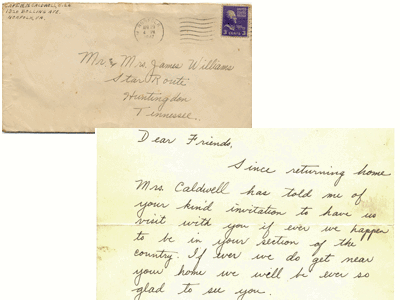 NORFOLK, VA.
Mr & Mrs. James Williams
Star Route
Huntingdon
Tennessee.
3 CENTS 3
Dear Friends,
Since returning home
Mrs. Caldwell has told me of
your kind invitation to have us
visit with you if ever we happen
to be in your section of the
country. If ever we do get near
your home we well be ever so
glad to see you.